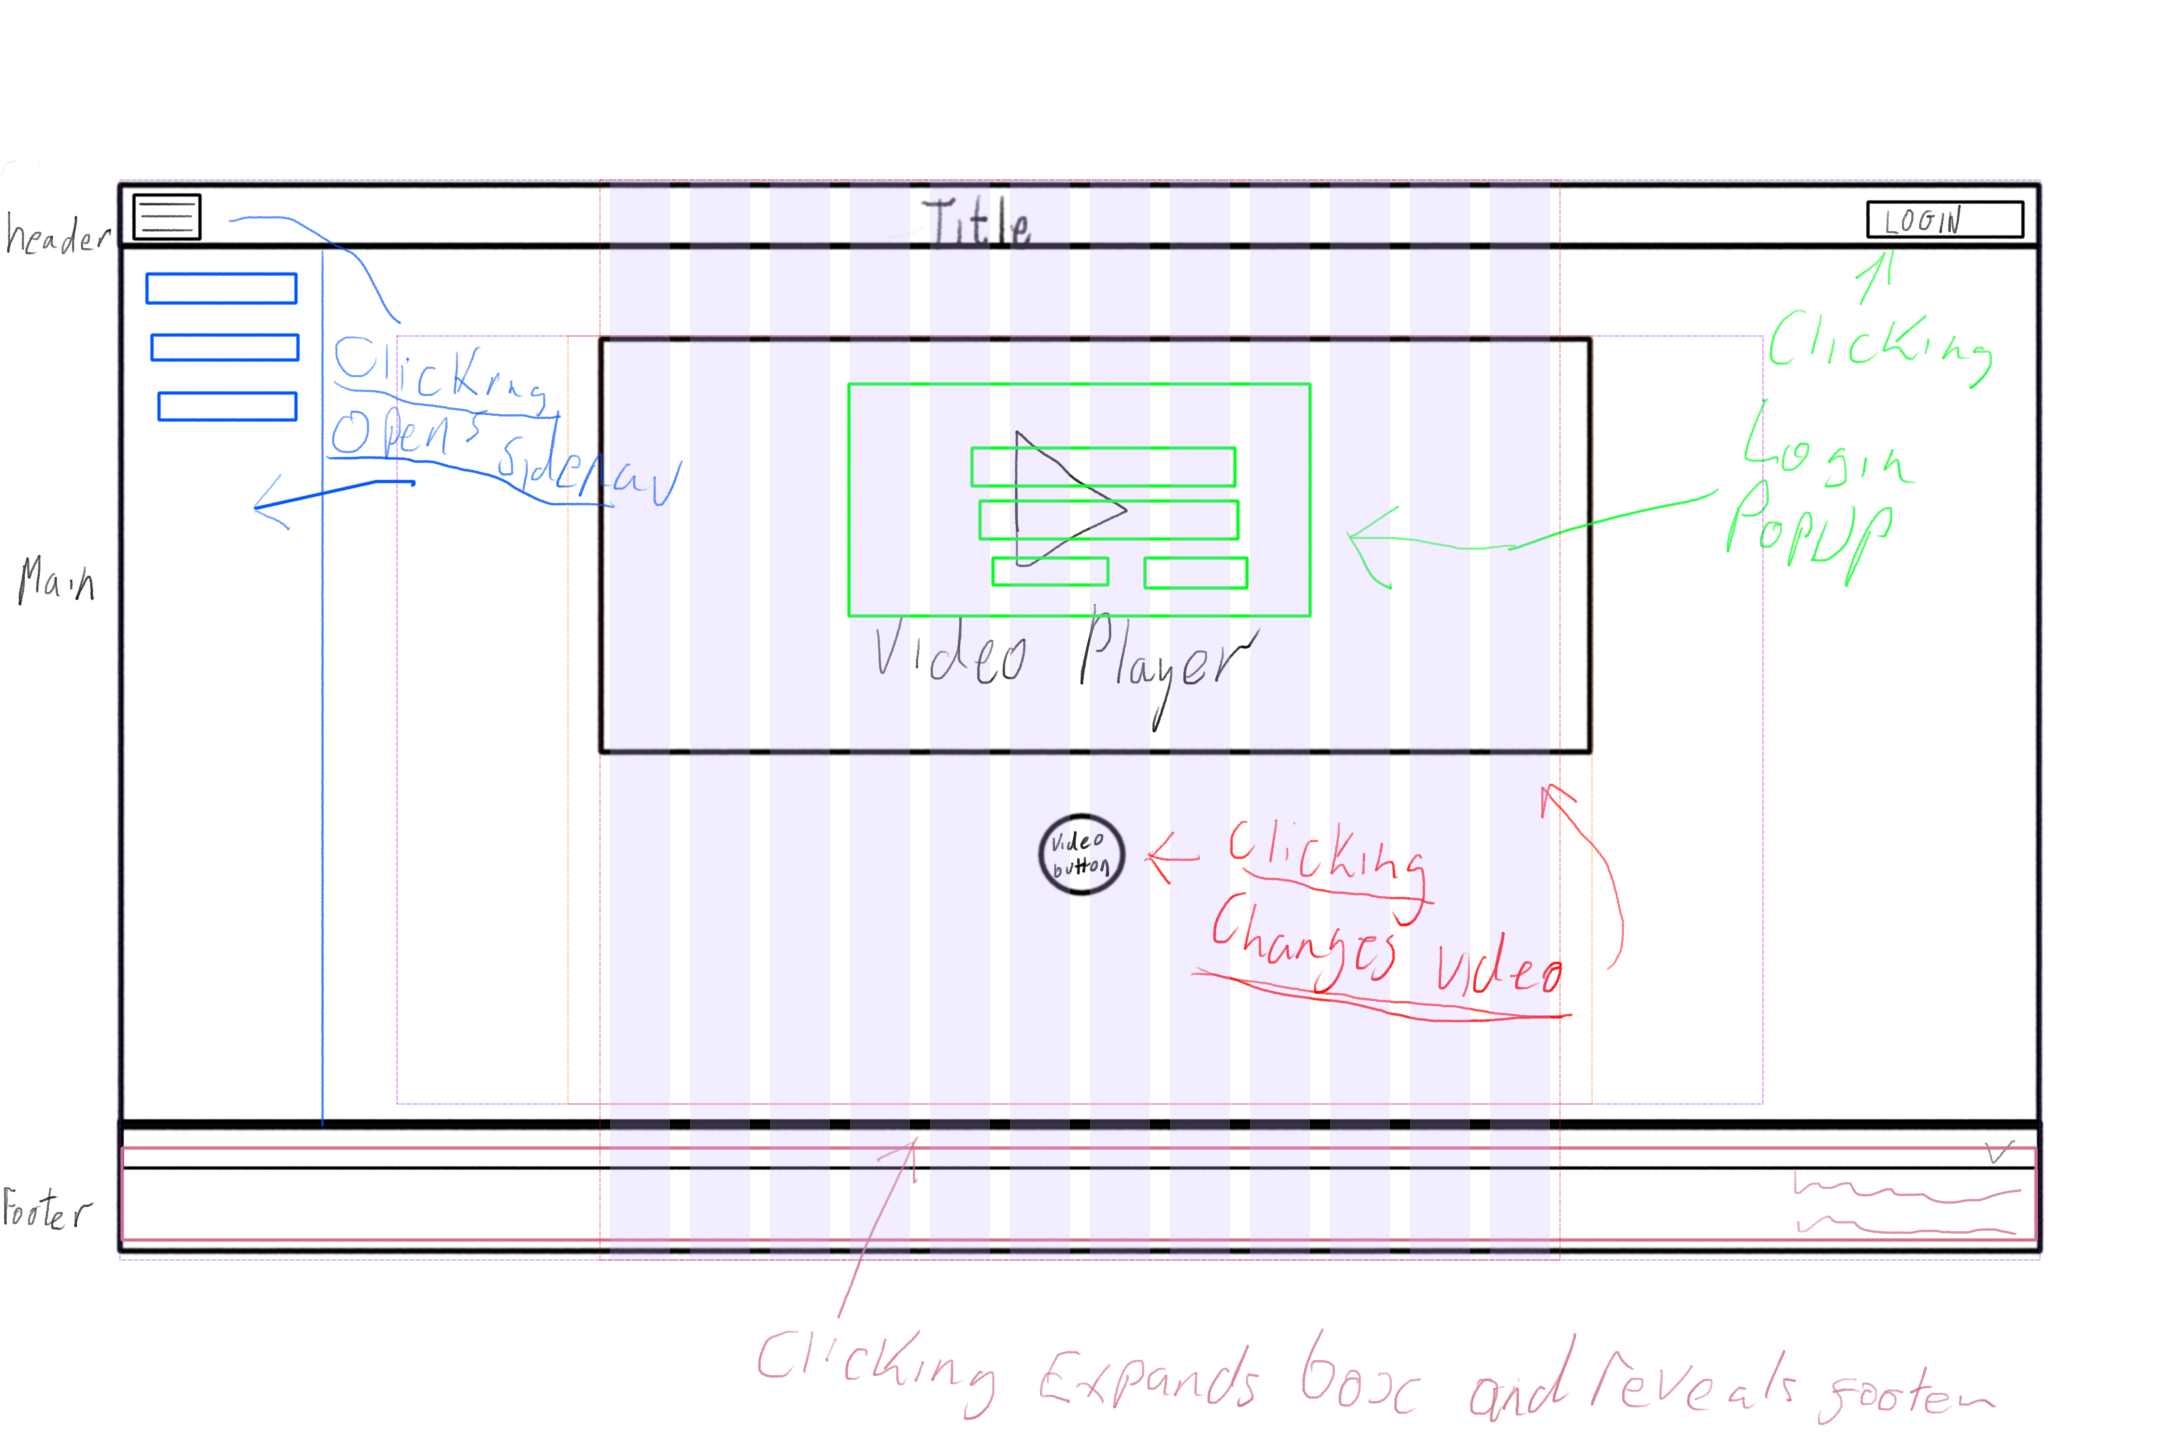 header
Title
LOGIN
Clicking
Opens sidenav
Clicking
Login
PopUP
Main
Video Player
Video
button
Clicking
Changes video
Footer
Clicking Expands box and reveals footer